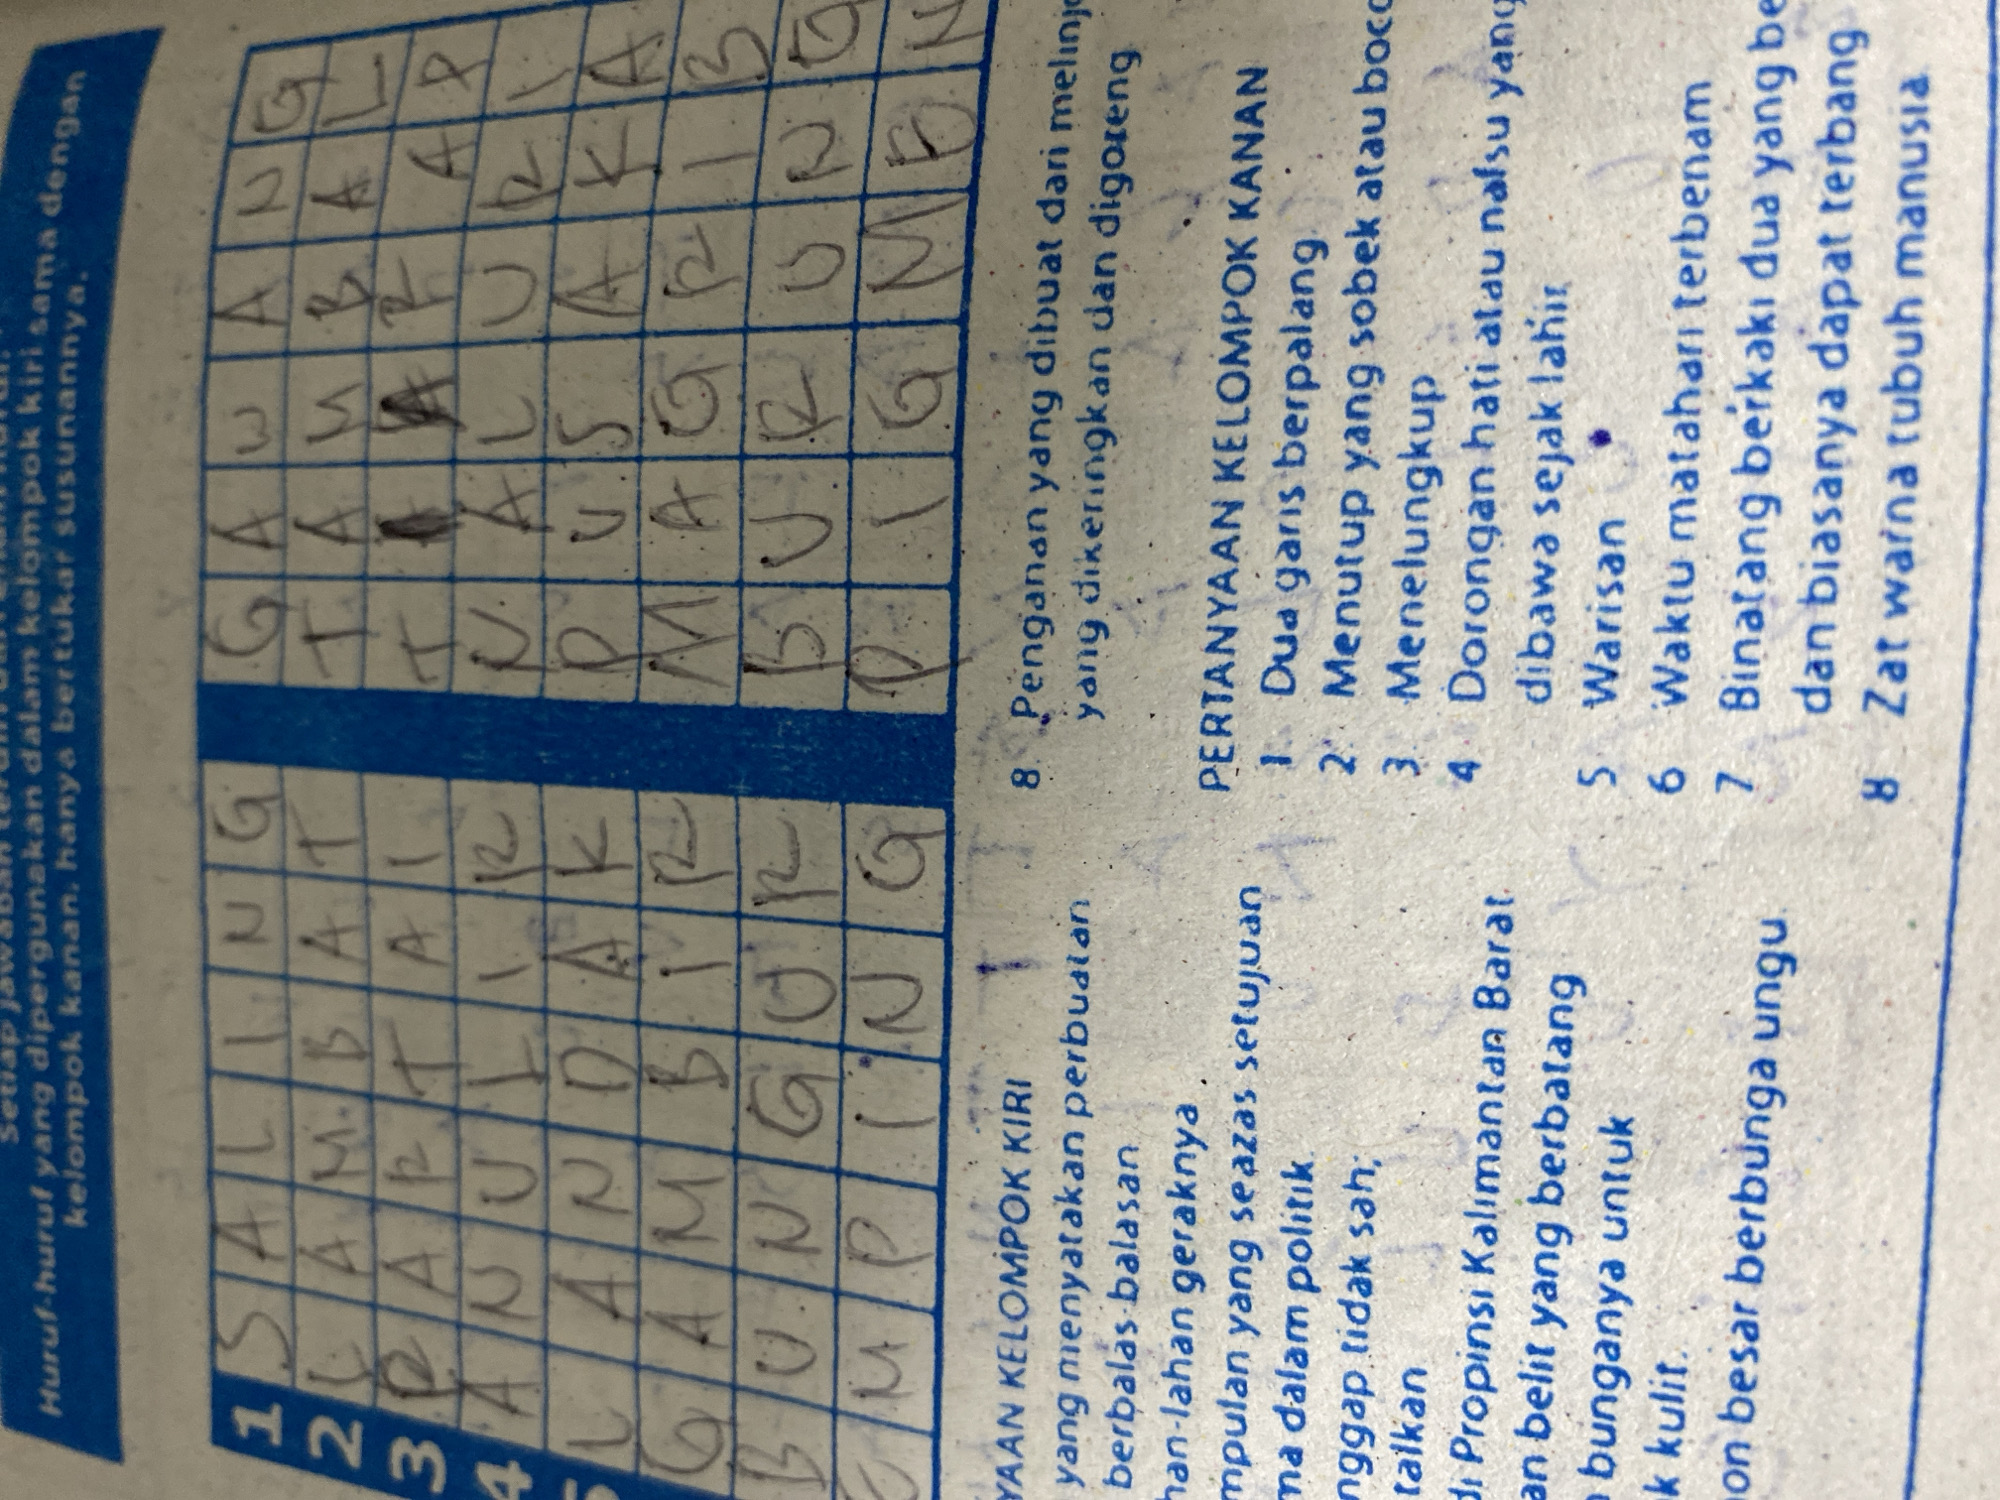 Huruf-huruf yang dipergunakan dalam kelompok kiri sama dengan
kelompok kanan, hanya bertukar susunannya.
1 S A L I N G G A W A N G
2 L A M B A T T A M B A L
3 P A R T A I T
4 A N U L I R N A L U R I
L A N D A K P U S A K A
G A M B I R M A G R I B
B U N G U R B U R U N G
M P I N G P I G M E N
YAAN KELOMPOK KIRI
yang menyatakan perbuatan
berbalas-balasan
han-lahan geraknya
mpulan yang seazas setujuan
ma dalam politik
nggap tidak sah;
talkan
di Propinsi Kalimantan Barat
an belit yang berbatang
bunganya untuk
k kulit.
on besar berbunga ungu
8. Penganan yang dibuat dari melinjo
yang dikeringkan dan digoreng
PERTANYAAN KELOMPOK KANAN
1. Dua garis berpalang
2. Menutup yang sobek atau boco
3. Menelungkup
4. Dorongan hati atau nafsu yang
dibawa sejak lahir
5. Warisan
6. Waktu matahari terbenam
7. Binatang berkaki dua yang be
dan biasanya dapat terbang
8. Zat warna tubuh manusia